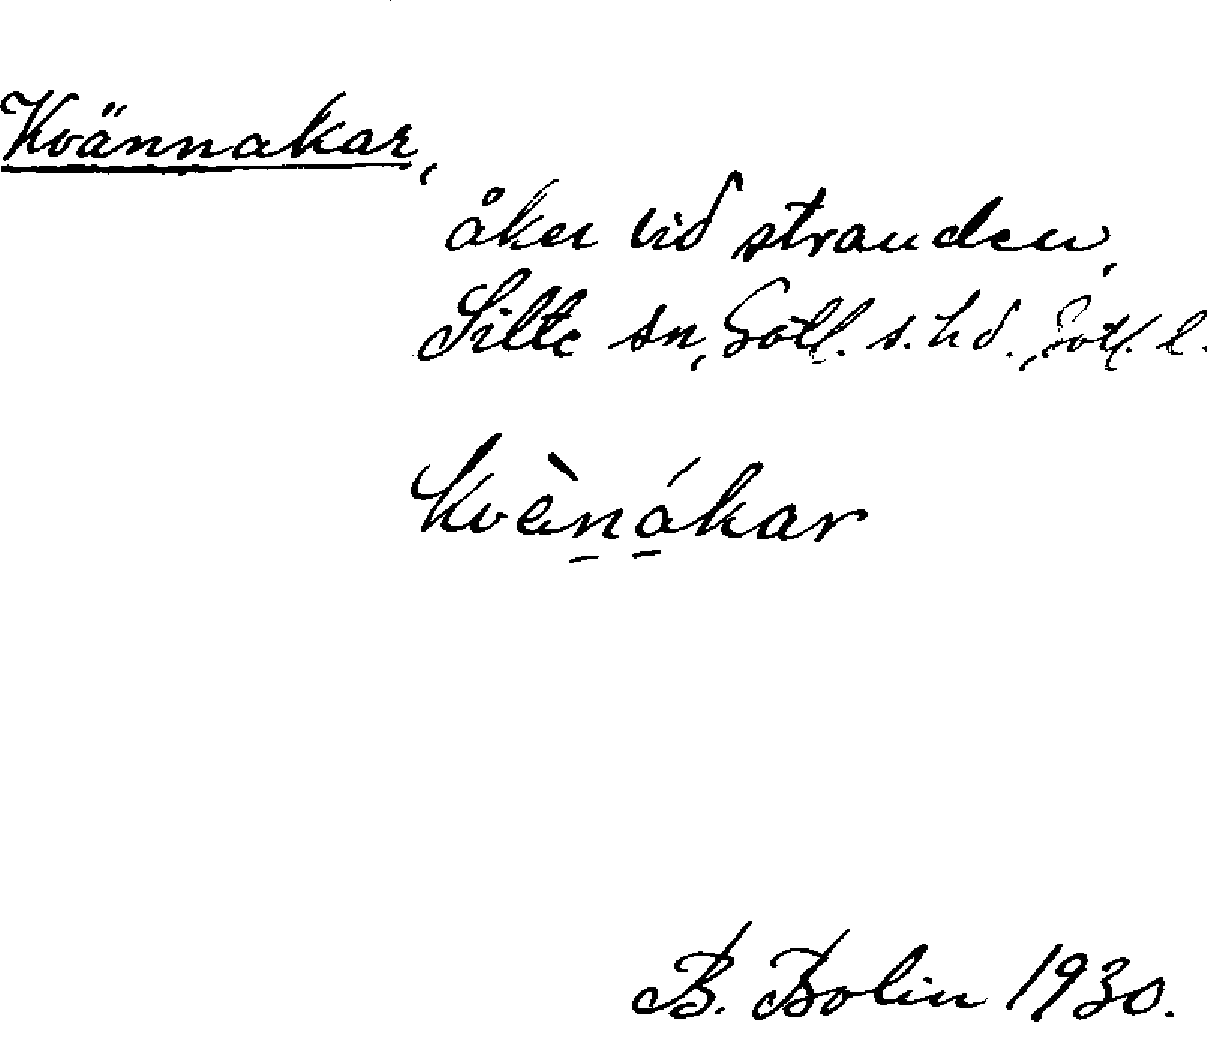 Kvännakar,
åker vid stranden,
Silte sn, Gotl. s. hd., Gotl. l.
Kvänákar
B. Bolin 1930.